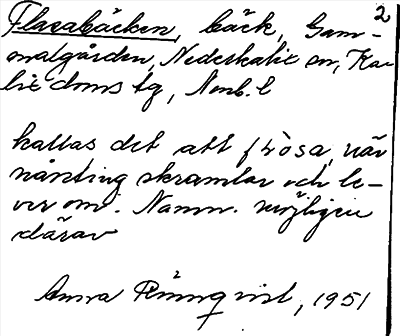 2
Flasabäcken, bäck, Gam-
malgården, Nederkalix sn, Ka-
lix doms tg, Nmb. l
kallas det att flosa, när
nånting skramlar och le-
ver om. Namn. möjligen
därav
Anna Rönnqvist, 1951